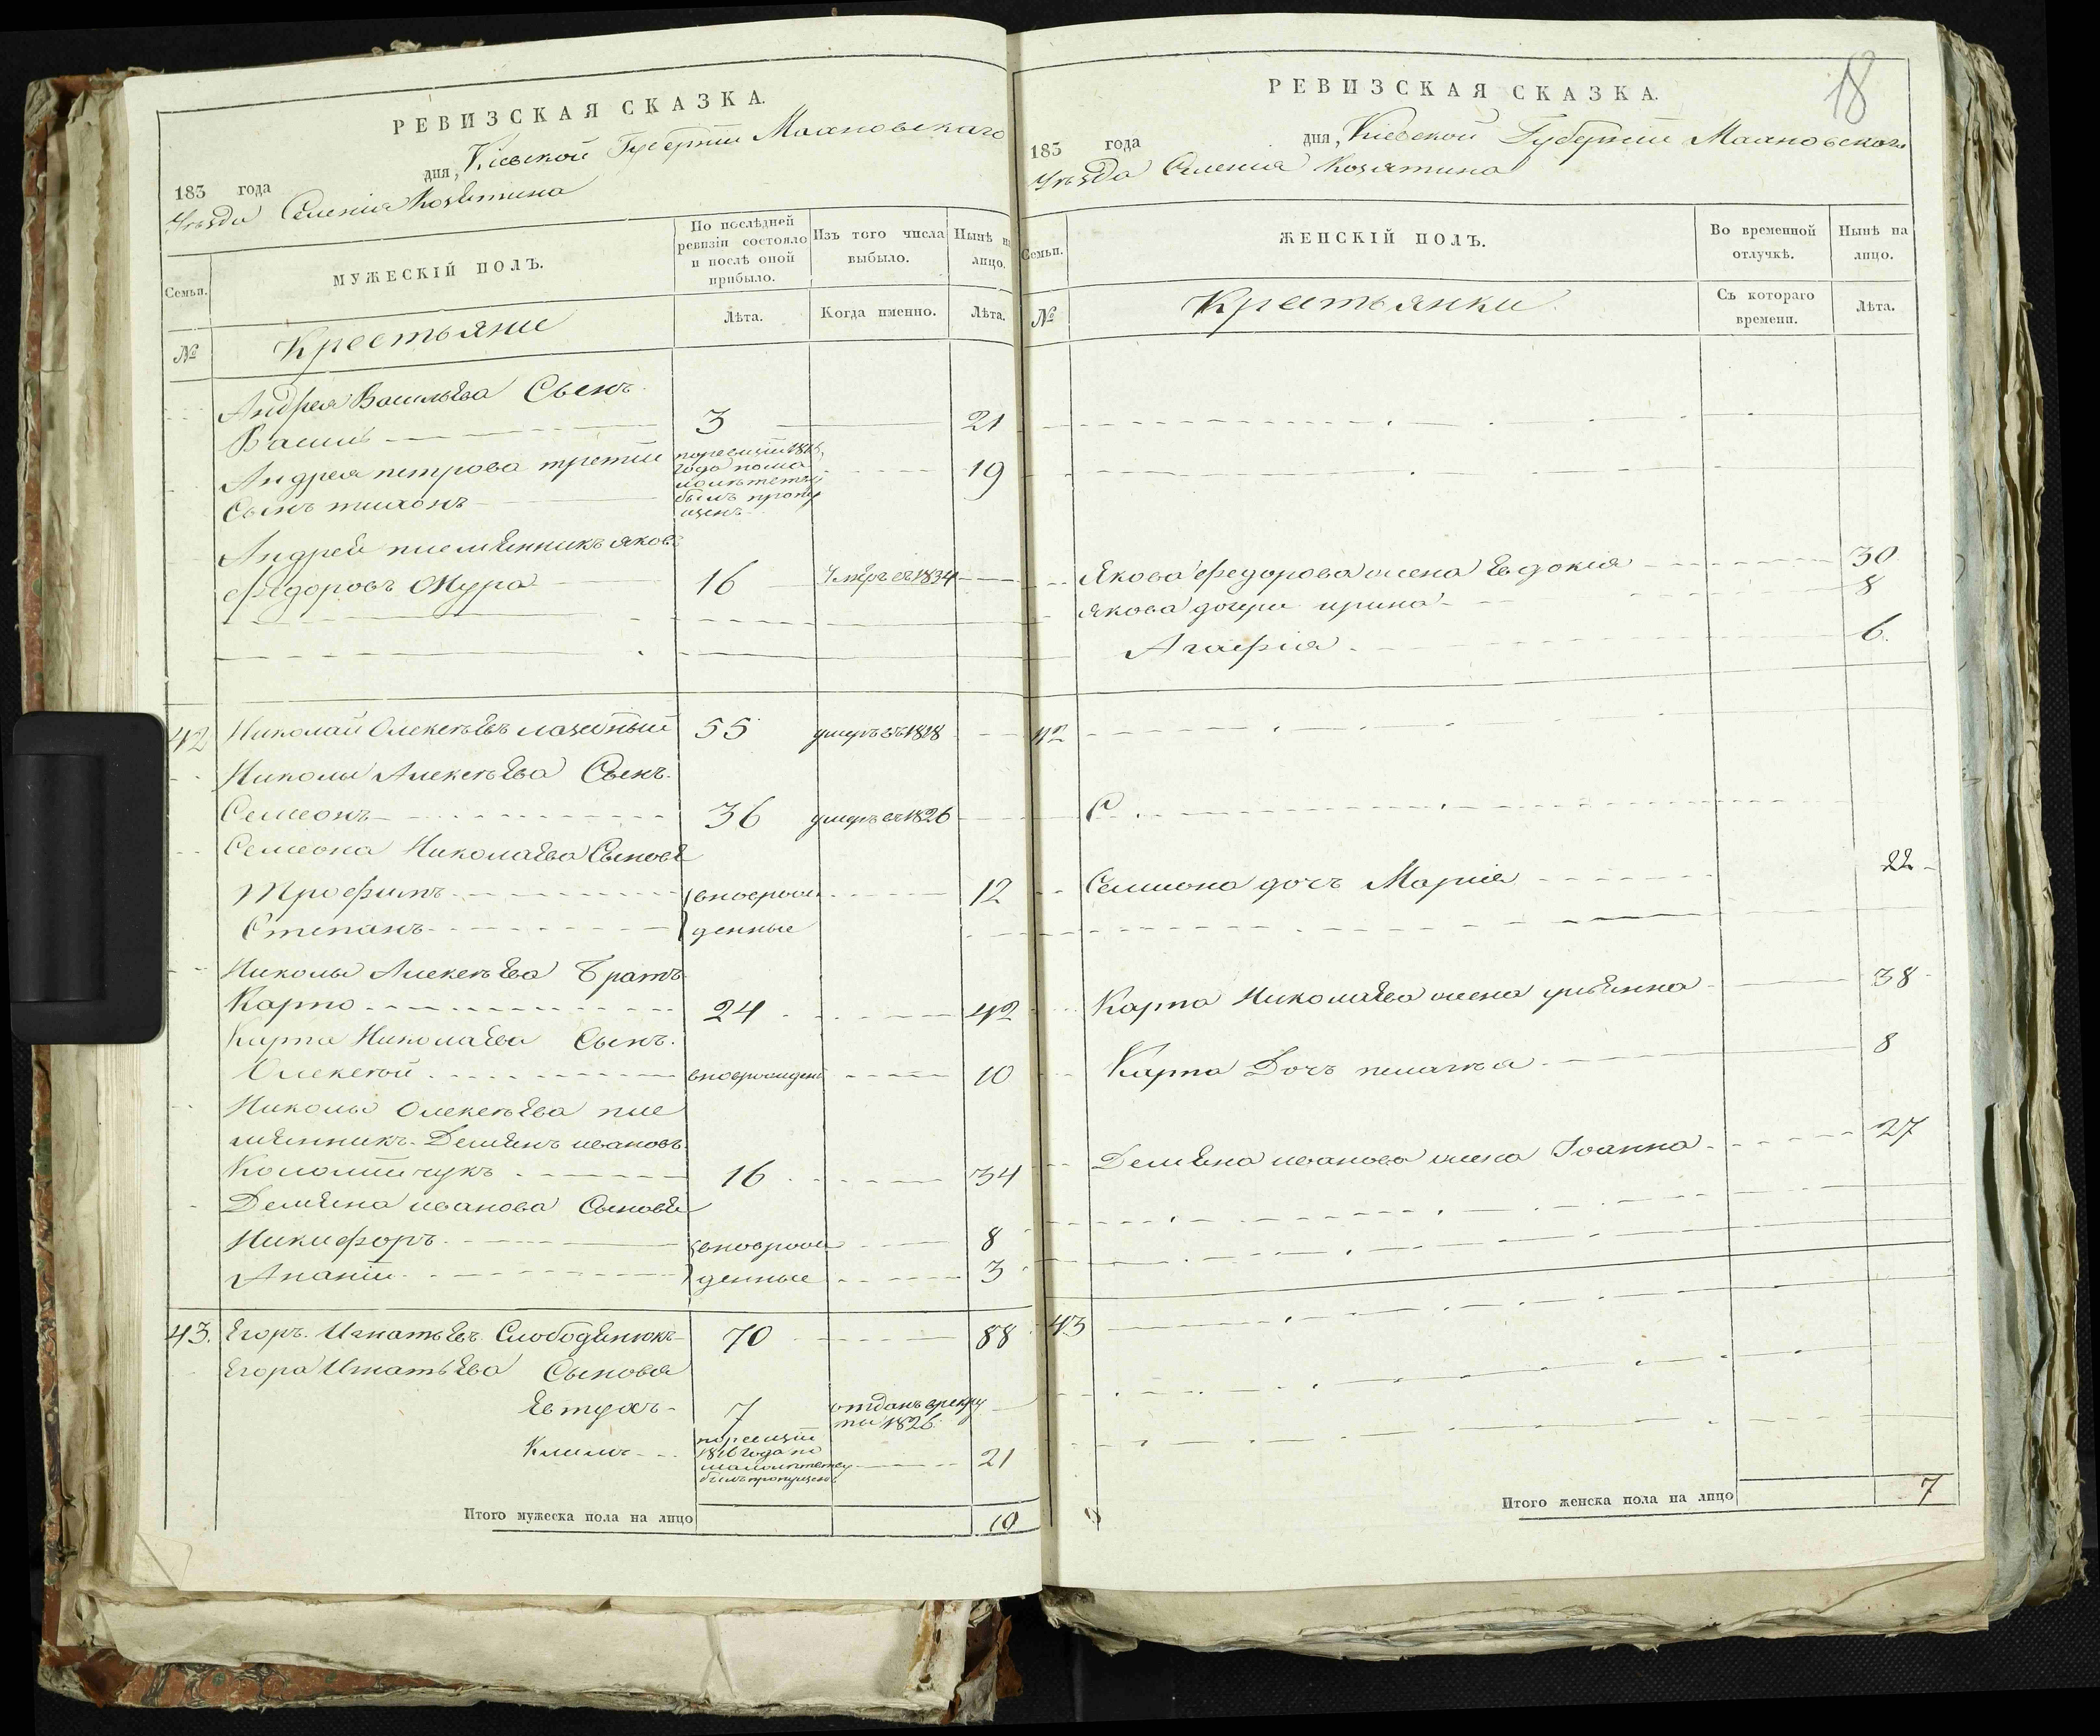 РЕВИЗСКАЯ СКАЗКА.
183 года дня, Кіевской Губерніи Махновскаго
Уѣзда Селенія Козятина
Семьи.
МУЖЕСКІЙ ПОЛЪ.
По послѣдней
ревизіи состояло
и послѣ оной
прибыло.
Изъ того числа
выбыло.
Нынѣ на
лицо.
№
Крестьяне
Лѣта.
Когда именно.
Лѣта.
Андрея Васильева Сынъ
Василь 3 21
Андрея петрова третій
Сынъ тихонъ 19
по ревизіи 1816
года по ма
лолѣтству
былъ пропу
щенъ
Андрея племенникъ яковъ
Федоровъ Жура 16 Умеръ въ 1834
42 Николай Олексѣевъ лазебный 55 умеръ въ 1828
Николы Алексѣева Сынъ
Семеонъ 36 умеръ въ 1826
Семеона Николаева Сыновя
Трофимъ вноврож 12
Степанъ денные
Николы Алексѣева Братъ
Карпо 24 42
Карпа Николаева Сынъ
Олексѣй вноврожден 10
Николы Олексѣева пле
менникъ Демянъ ивановъ
Коломійчукъ 16 34
Демяна иванова Сыновя
Никифоръ вноврож 8
Ананій денные 3
43. Егоръ Игнатьевъ Слободенюкъ 70 88
Егора Игнатьева Сыновя
Евтухъ 7 отданъ врекру
ты 1826
Климъ 21
по ревизіи
1816 года по
малолѣтству
былъ пропущенъ
Итого мужеска пола на лицо 10
18
РЕВИЗСКАЯ СКАЗКА.
183 года дня, Кіевской Губерніи Махновскаго
Уѣзда Селенія Козятина
Семьи.
ЖЕНСКІЙ ПОЛЪ.
Во временной
отлучкѣ.
Нынѣ на
лицо.
№
Крестьянки
Съ котораго
времени.
Лѣта.
Якова федорова жена Евдокія 30
якова дочери ирина 8
Агафія 6.
42
С
Семиона дочъ Марія 22
Карпа Николаева жена улянна 38
Карпа Дочъ пелагея 8
Демяна иванова жена Іоанна 27
43
Итого женска пола на лицо 7